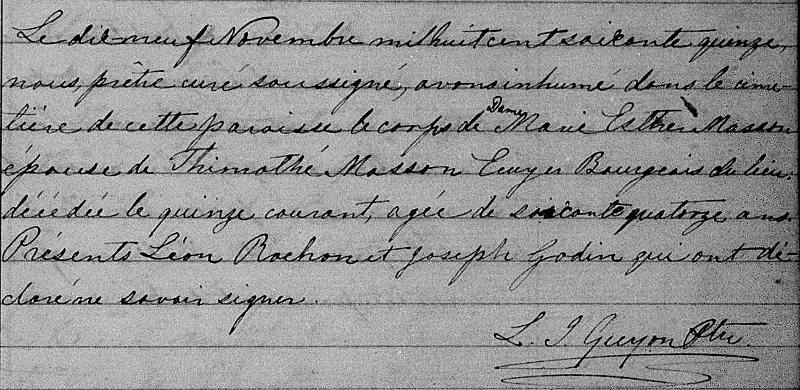 Le dix neuf Novembre mil huit cent soixante quinze,
nous, prêtre curé soussigné, avons inhumé dans le cime-
tière de cette paroisse le corps de Dame Marie Esther Masson
épouse de Thimothé Masson Ecuyer Bourgeois du lieu,
décédée le quinze courant, agée de soixante quatorze ans.
Présents Léon Rochon et Joseph Godin qui ont dé-
claré ne savoir signer.
L. J. Guyon Ptre.